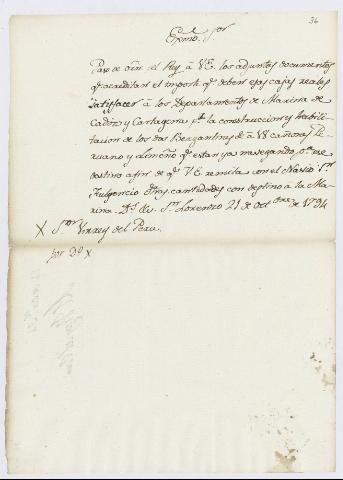 36
Exmo. Sor
Paso de orn. del Rey à V.E. los adjuntos documentos
q. acreditan el import. q. deben esas cajas reales
satisfacer à los Departamentos de Marina de
Cadiz y Cartagena pr. la construccion y habili-
tacion de los dos Bergantines de à 18 cañones Pe-
ruano y Limeño q. estan ya navegando pa. ese
destino a fin de q. V.E. remita con el Navio Sn.
Fulgencio dhas cantidades con destino a la Ma-
rina. Ds. &a. Sn. Lorenzo 21 de Octbre. de 1794
X Sor. Virrey del Peru.
por Do X